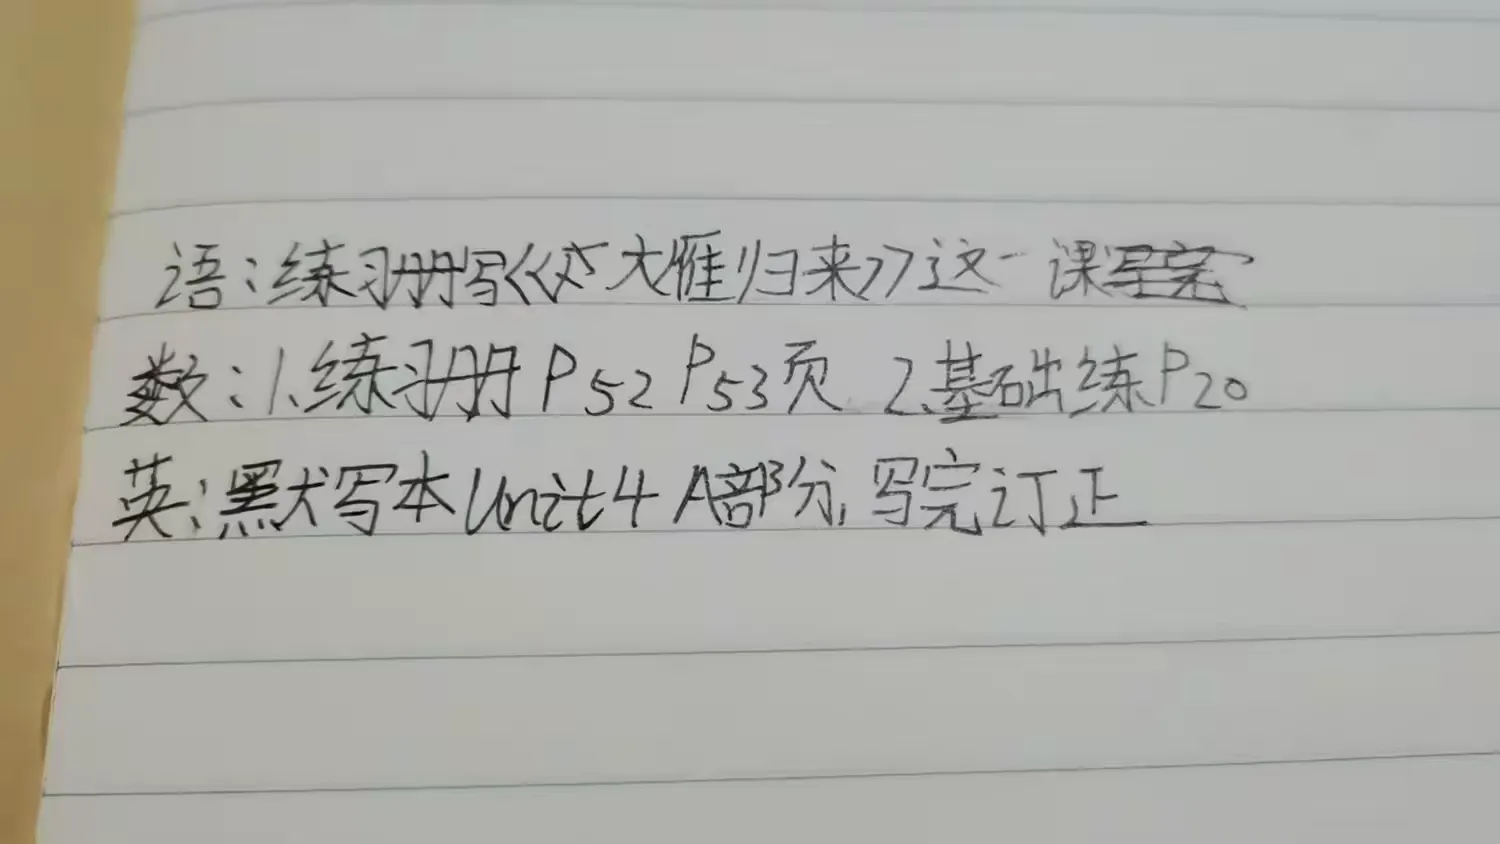 语：练习册写《大雁归来》这一课
数：1.练习册P52 P53页 2.基础练P20
英：默写本Unit4 A部分，写完订正